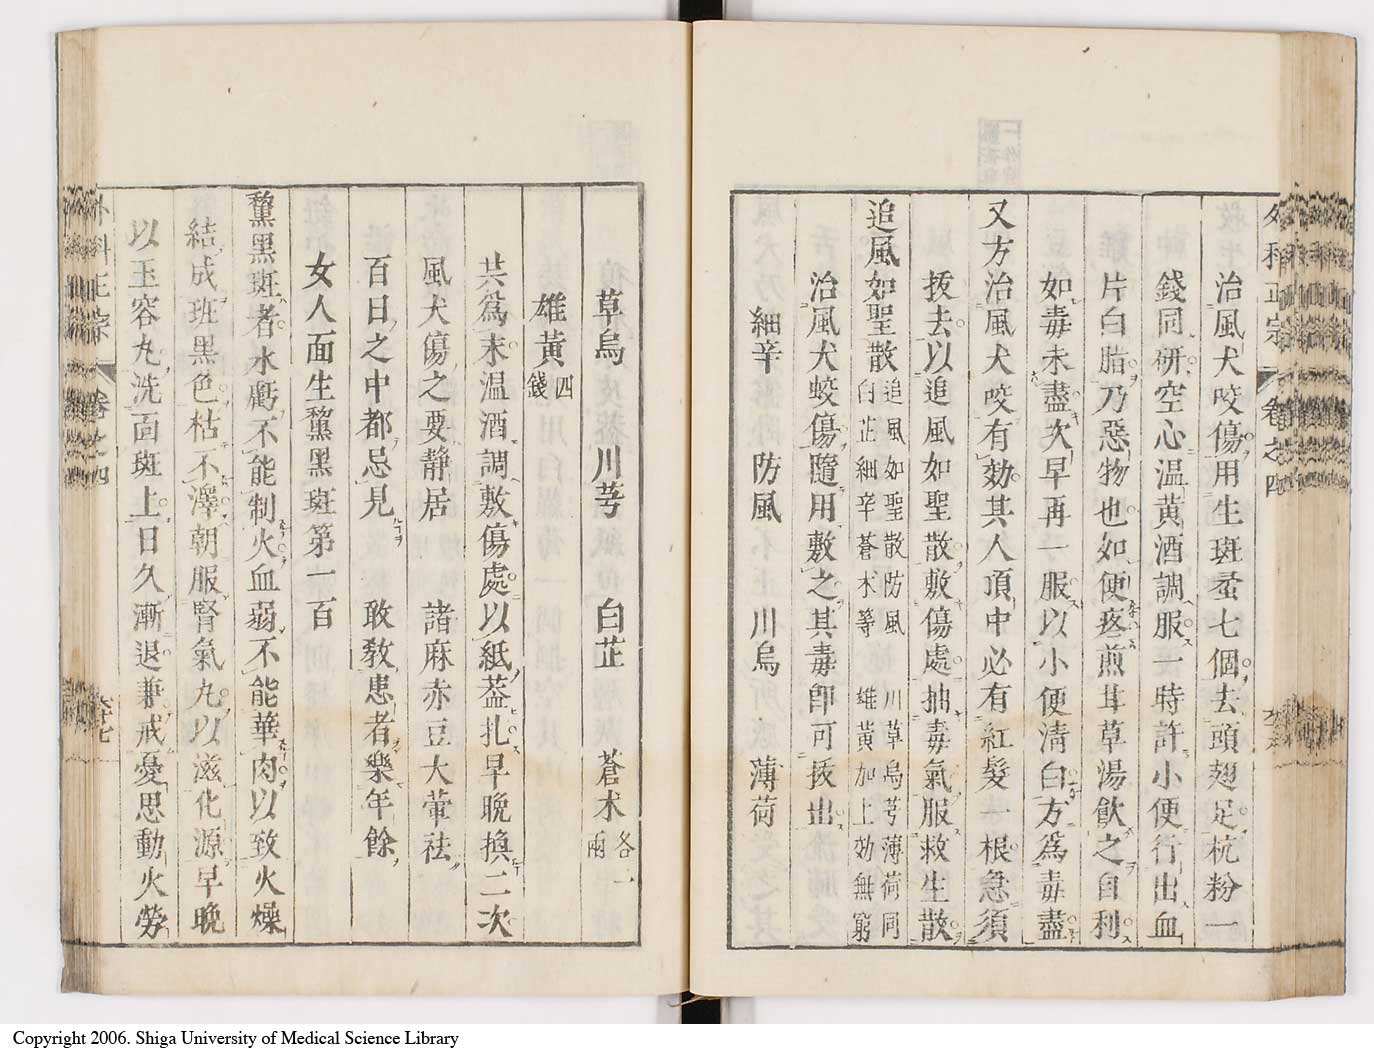 外科正宗 卷之四
治風犬咬傷用生斑蝥七個去頭翅足杭粉一
錢同研空心温黄酒調服一時許小便行出血
片白脂乃惡物也如便疼煎甘草湯飲之自利
如毒未盡次早再一服以小便淸白方為毒盡
又方治風犬咬有効其人頂中必有紅髮一根急須
拔去以追風如聖散敷傷處抽毒氣服救生散
追風如聖散 追風如聖散防風 川草烏芎薄荷同
白芷細辛蒼木等 雄黄加上効無窮
治風犬蛟傷隨用敷之其毒卽可拔出
細辛 防風 川烏 薄荷
草烏 川芎 白芷 蒼术各一兩
雄黄四錢
共爲末温酒調敷傷處以紙葢扎早晚換二次
風犬傷之要靜居 諸麻赤豆大葷祛
百日之中都忌見 敢敎患者樂年餘
女人面生黧黑斑第一百
黧黑斑者水虧不能制火血弱不能華肉以致火燥
結成斑黑色枯不澤朝服腎氣丸以滋化源早晚
以玉容丸洗面斑上日久漸退兼戒憂思動火勞
外科正宗 卷之四 六十七
Copyright 2006. Shiga University of Medical Science Library